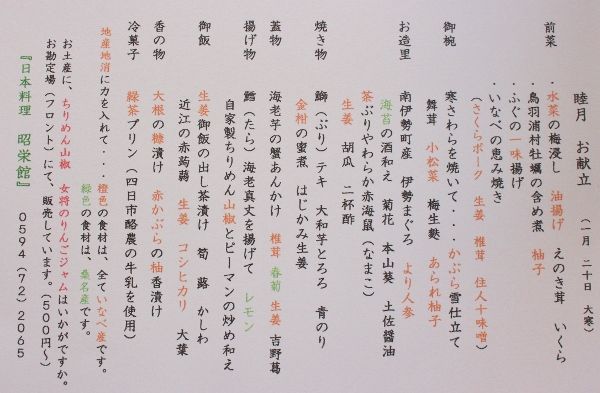 睦月　お献立　（一月　二十日　大寒）
前菜　・水菜の梅浸し　油揚げ　えのき茸　いくら
・鳥羽浦村牡蠣の含め煮　柚子
・ふぐの一味揚げ
・いなべの恵み焼き
（さくらポーク　生姜　椎茸　住人十味噌）
御椀　寒さわらを焼いて・・・かぶら雪仕立て
舞茸　小松菜　梅生麩　あられ柚子
お造里　南伊勢町産　伊勢まぐろ　より人参
海苔の酒和え　菊花　本山葵　土佐醤油
茶ぶりやわらか赤海鼠（なまこ）
生姜　胡瓜　二杯酢
焼き物　鰤（ぶり）テキ　大和芋とろろ　青のり
金柑の蜜煮　はじかみ生姜
蓋物　海老芋の蟹あんかけ　椎茸　春菊　生姜　吉野葛
揚げ物　鱈（たら）海老真丈を揚げて　レモン
自家製ちりめん山椒とピーマンの炒め和え
御飯　生姜御飯の出し茶漬け　筍　蕗　かしわ
近江の赤蒟蒻　生姜　コシヒカリ　大葉
香の物　大根の糠漬け　赤かぶらの柚香漬け
冷菓子　緑茶プリン（四日市酪農の牛乳を使用）
地産地消に力を入れて・・・橙色の食材は、全ていなべ産です。
緑色の食材は、桑名産です。
お土産に、ちりめん山椒　女将のりんごジャムはいかがですか。
お勘定場（フロント）にて、販売しています。（５００円～）
『日本料理　昭栄館』　０５９４（７２）２０６５